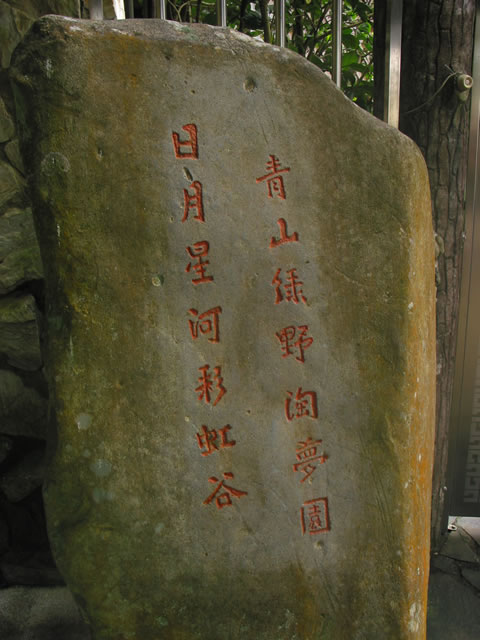 青山綠野淘夢園
日月星河彩虹谷